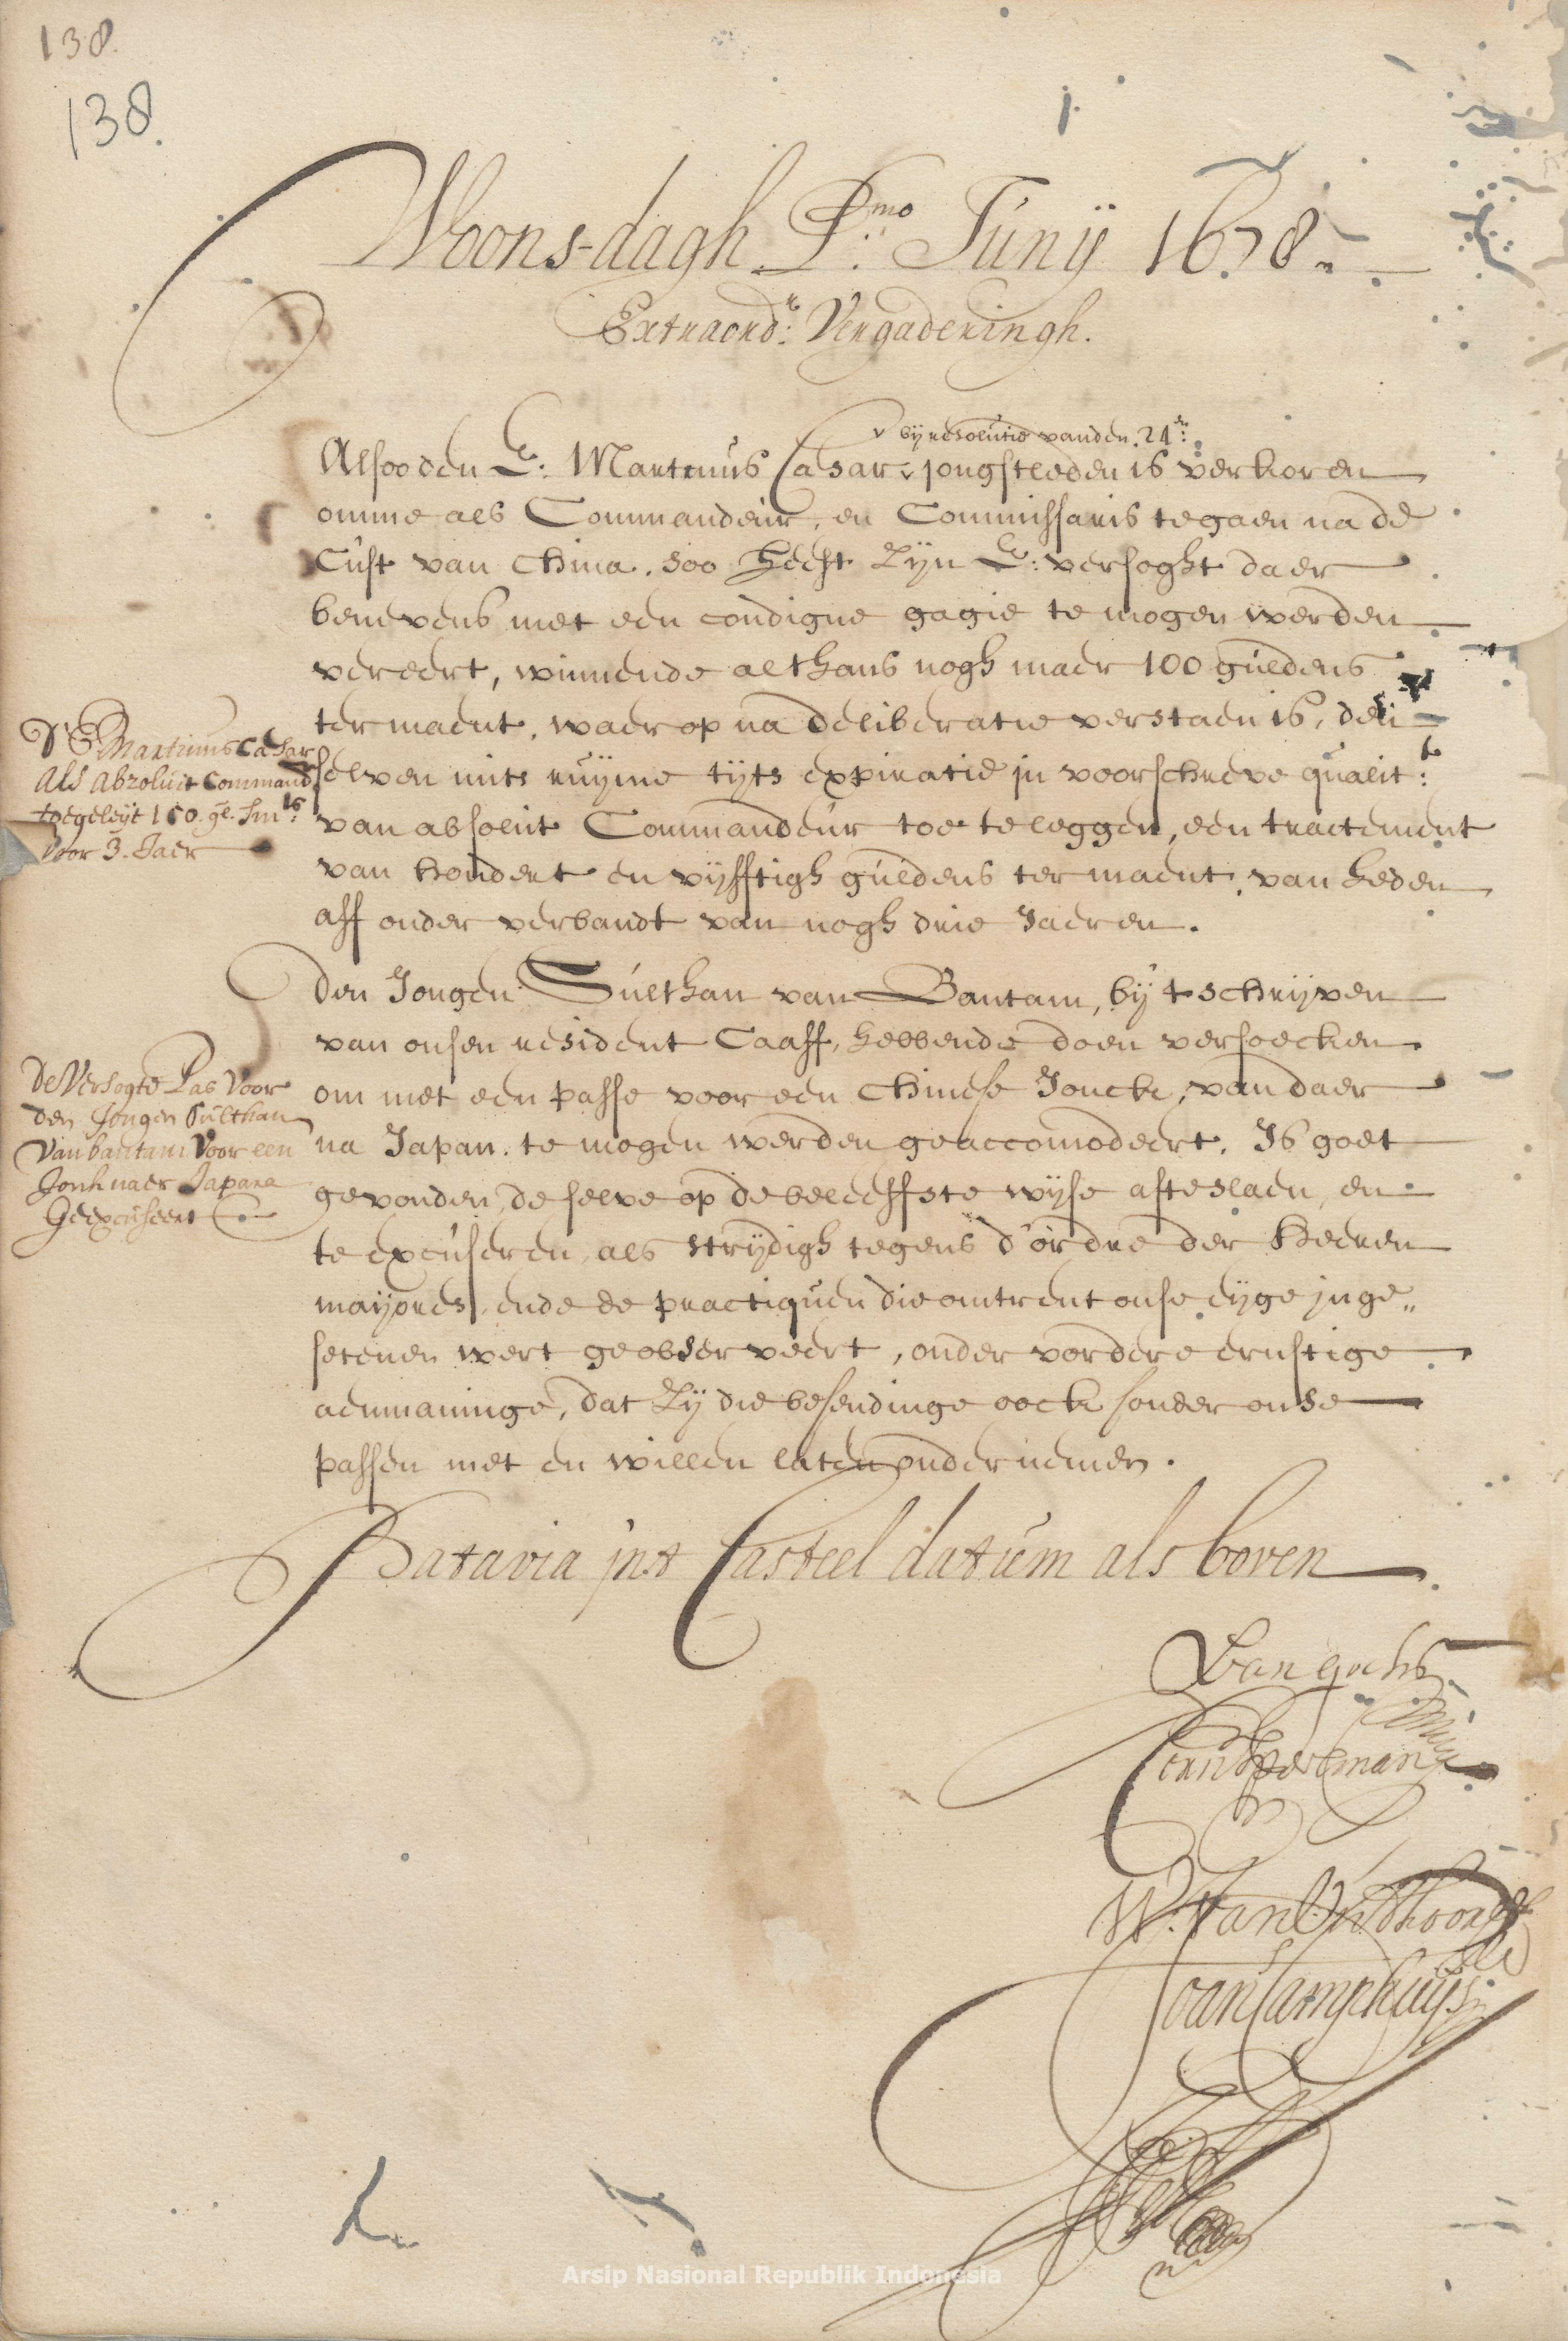 138.
138.
Woonsdagh P:mo Junij 1678.
Extraord:e Vergaderingh.
bij resolutie vanden 24:en
Alsoo den E: Martinus Caesar jongstleden is verkoren
omme als Commandeur, en Commissaris te gaen na de
Cust van China. soo heeft Zijn E: versoght daer
benevens met een condigne gagie te mogen werden
vereert, winnende althans nogh maer 100 guldens
ter maent, waerop na deliberatie verstaen is, den
selven mits ruijme tijts expiratie in voorschreve qualit:t
van absolut Commandeur toe te leggen, een tractement
van hondert en vijfftigh guldens ter maent, van heden
aff onder verbandt van nogh drie Jaeren.
D' E Martinus Caesar
Als Absoluit Command:r
toegeleijt 150. gl. s'm:ts
voor 3. Jaer
Den Jongen Sulthan van Bantam, bij 't schrijven
van onsen resident Caaff, hebbende doen versoecken
om met een passe voor een Chinese Jonck, van daer
na Japan te mogen werden geaccomodeert. Is goet
gevonden, de selve op de beleeffste wijse afteslaen, en
te excuseren, als strijdigh tegens d'ordre der Heeren
maijores, ende de practiquen die omtrent onse eijge inge„
setenen wert geobserveert, onder vordere ernstige
aenmaninge, dat Zij die besendinge oock sonder onse
passen niet en willen laten ondernemen.
De Versogte Pas Voor
den Jongen Sulthan
Van bantam Voor een
Jonk naer Japara
Geexcuseert
Batavia in't Casteel datum als boven
Van Goens
Corn Speelman
W. van Outhoorn
Joan Camphuijs
Arsip Nasional Republik Indonesia